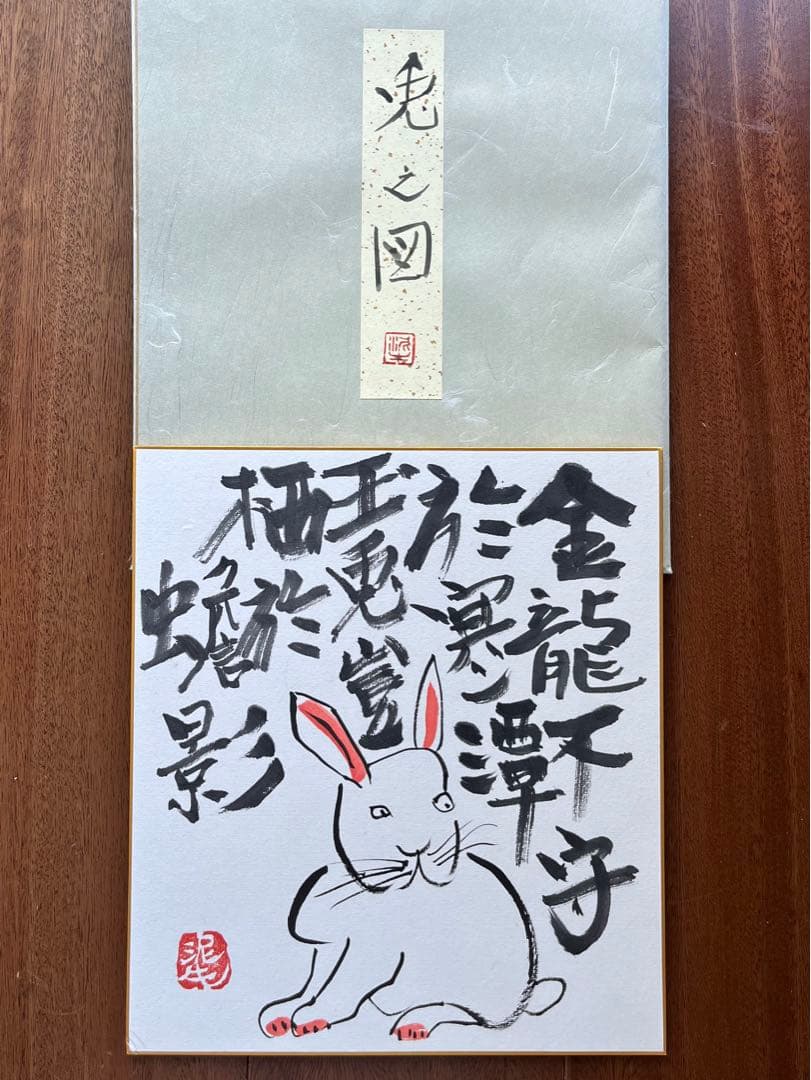 兎之図
金龍不守
於寒潭
玉兎豈
栖於
蟾影